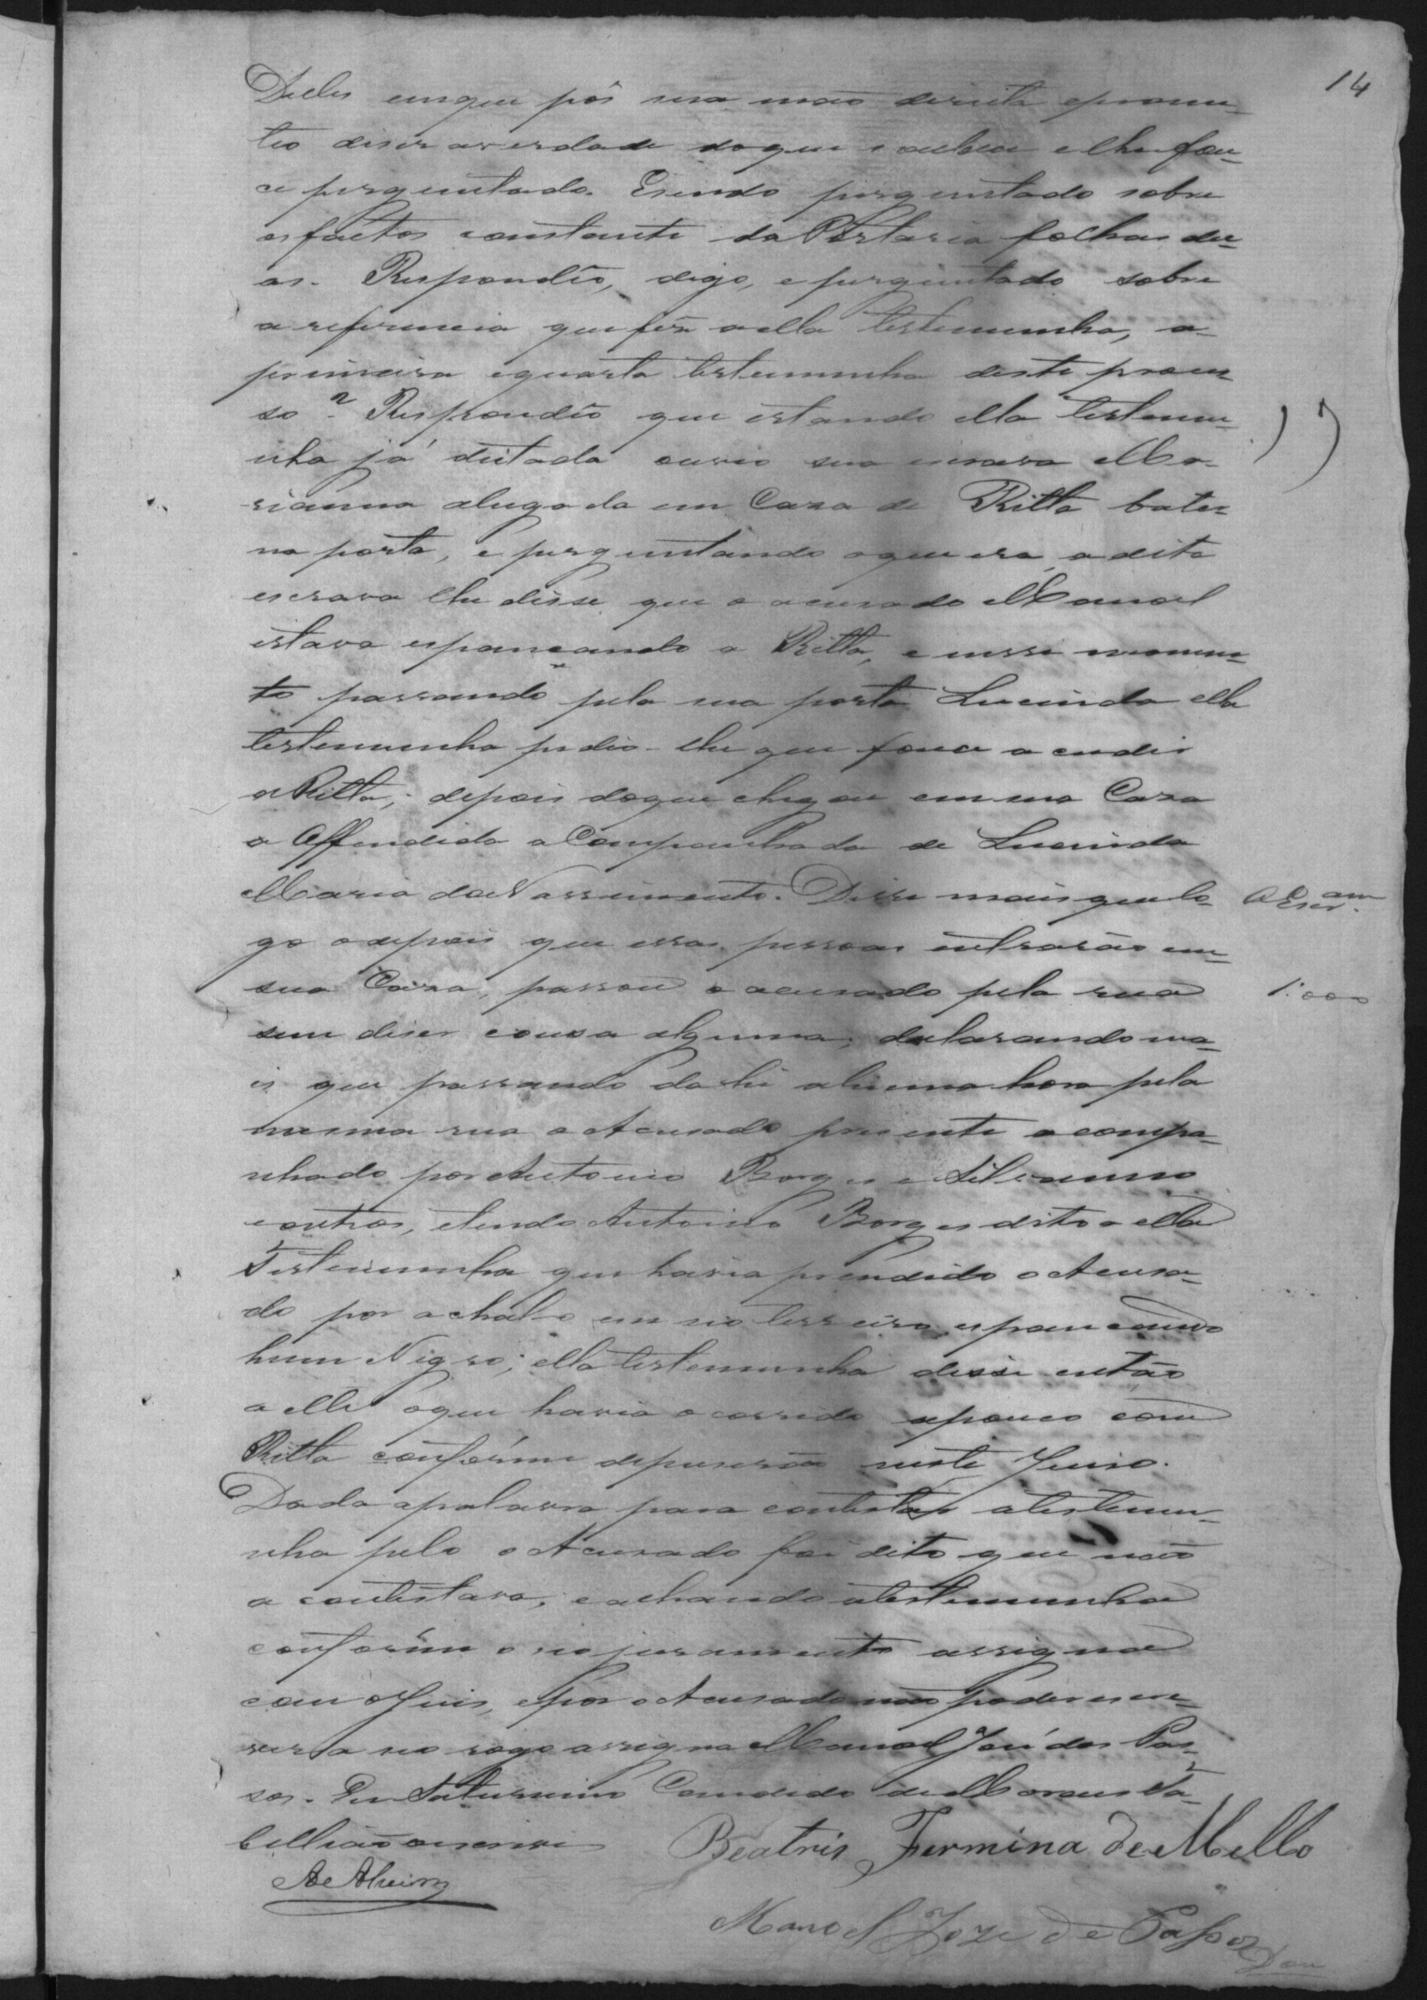 14
Delles em que pôs sua mão direita e prome-
teo diser averdade do que soubese e lhe fou-
ce perguntado. Esendo perguntado sobre
os factos constante da Portaria folhas du-
as. Respondêo, digo, e perguntado sobre
a referencia que fêz a ella testemunha, a
primeira e quarta testemunha deste proces-
so? Respondêo que estando ella testemu-
nha já deitada ouvio sua escrava Ma-
rianna alugada em Caza de Ritta bater
na porta, e perguntando o que era, a dita
escrava lhe disse que o acusado Manoel
estava espancando a Ritta, e nesse momen-
to passando pela sua porta Lucinda ella
testemunha pedio-lhe que fouce acudir
a Ritta; depois do que chegou em sua Caza
a Offendida a Companhada de Lucinda
Maria do Nassimento. Disse mais que lo-
go adepois que essas pessoas entrarão em
sua Caza, passou o acusado pela rua
sem diser couza alguma, declarando ma-
is que passando dahi a huma hora pela
mesma rua o Acusado presente acompa-
nhado por Antonio Borges e Silvanno
e outros, e tendo Antonio Borges dito a ella
Testemunha que havia prendido o Acusa-
do por achalo em seo terreiro espancando
hum Negro; ella testemunha disse então
a elle o que havia ocorrido apouco com
Ritta conforme depuserão neste Juiso.
Dada apalavra para contestar a testemu-
nha pelo o Acusado foi dito que não
a contestava; e achando a testemunha
conforme o seo juramento assigna
com o Juis, e por o Acusado não poder escre-
ver a seo rogo assigna Manoel José dos Pas-
sos. Eu Saturnino Candido de Moraes Ta-
bellião o escrevi
Beatris Fermina de Mello
Manoel Joze de Passos
1:000